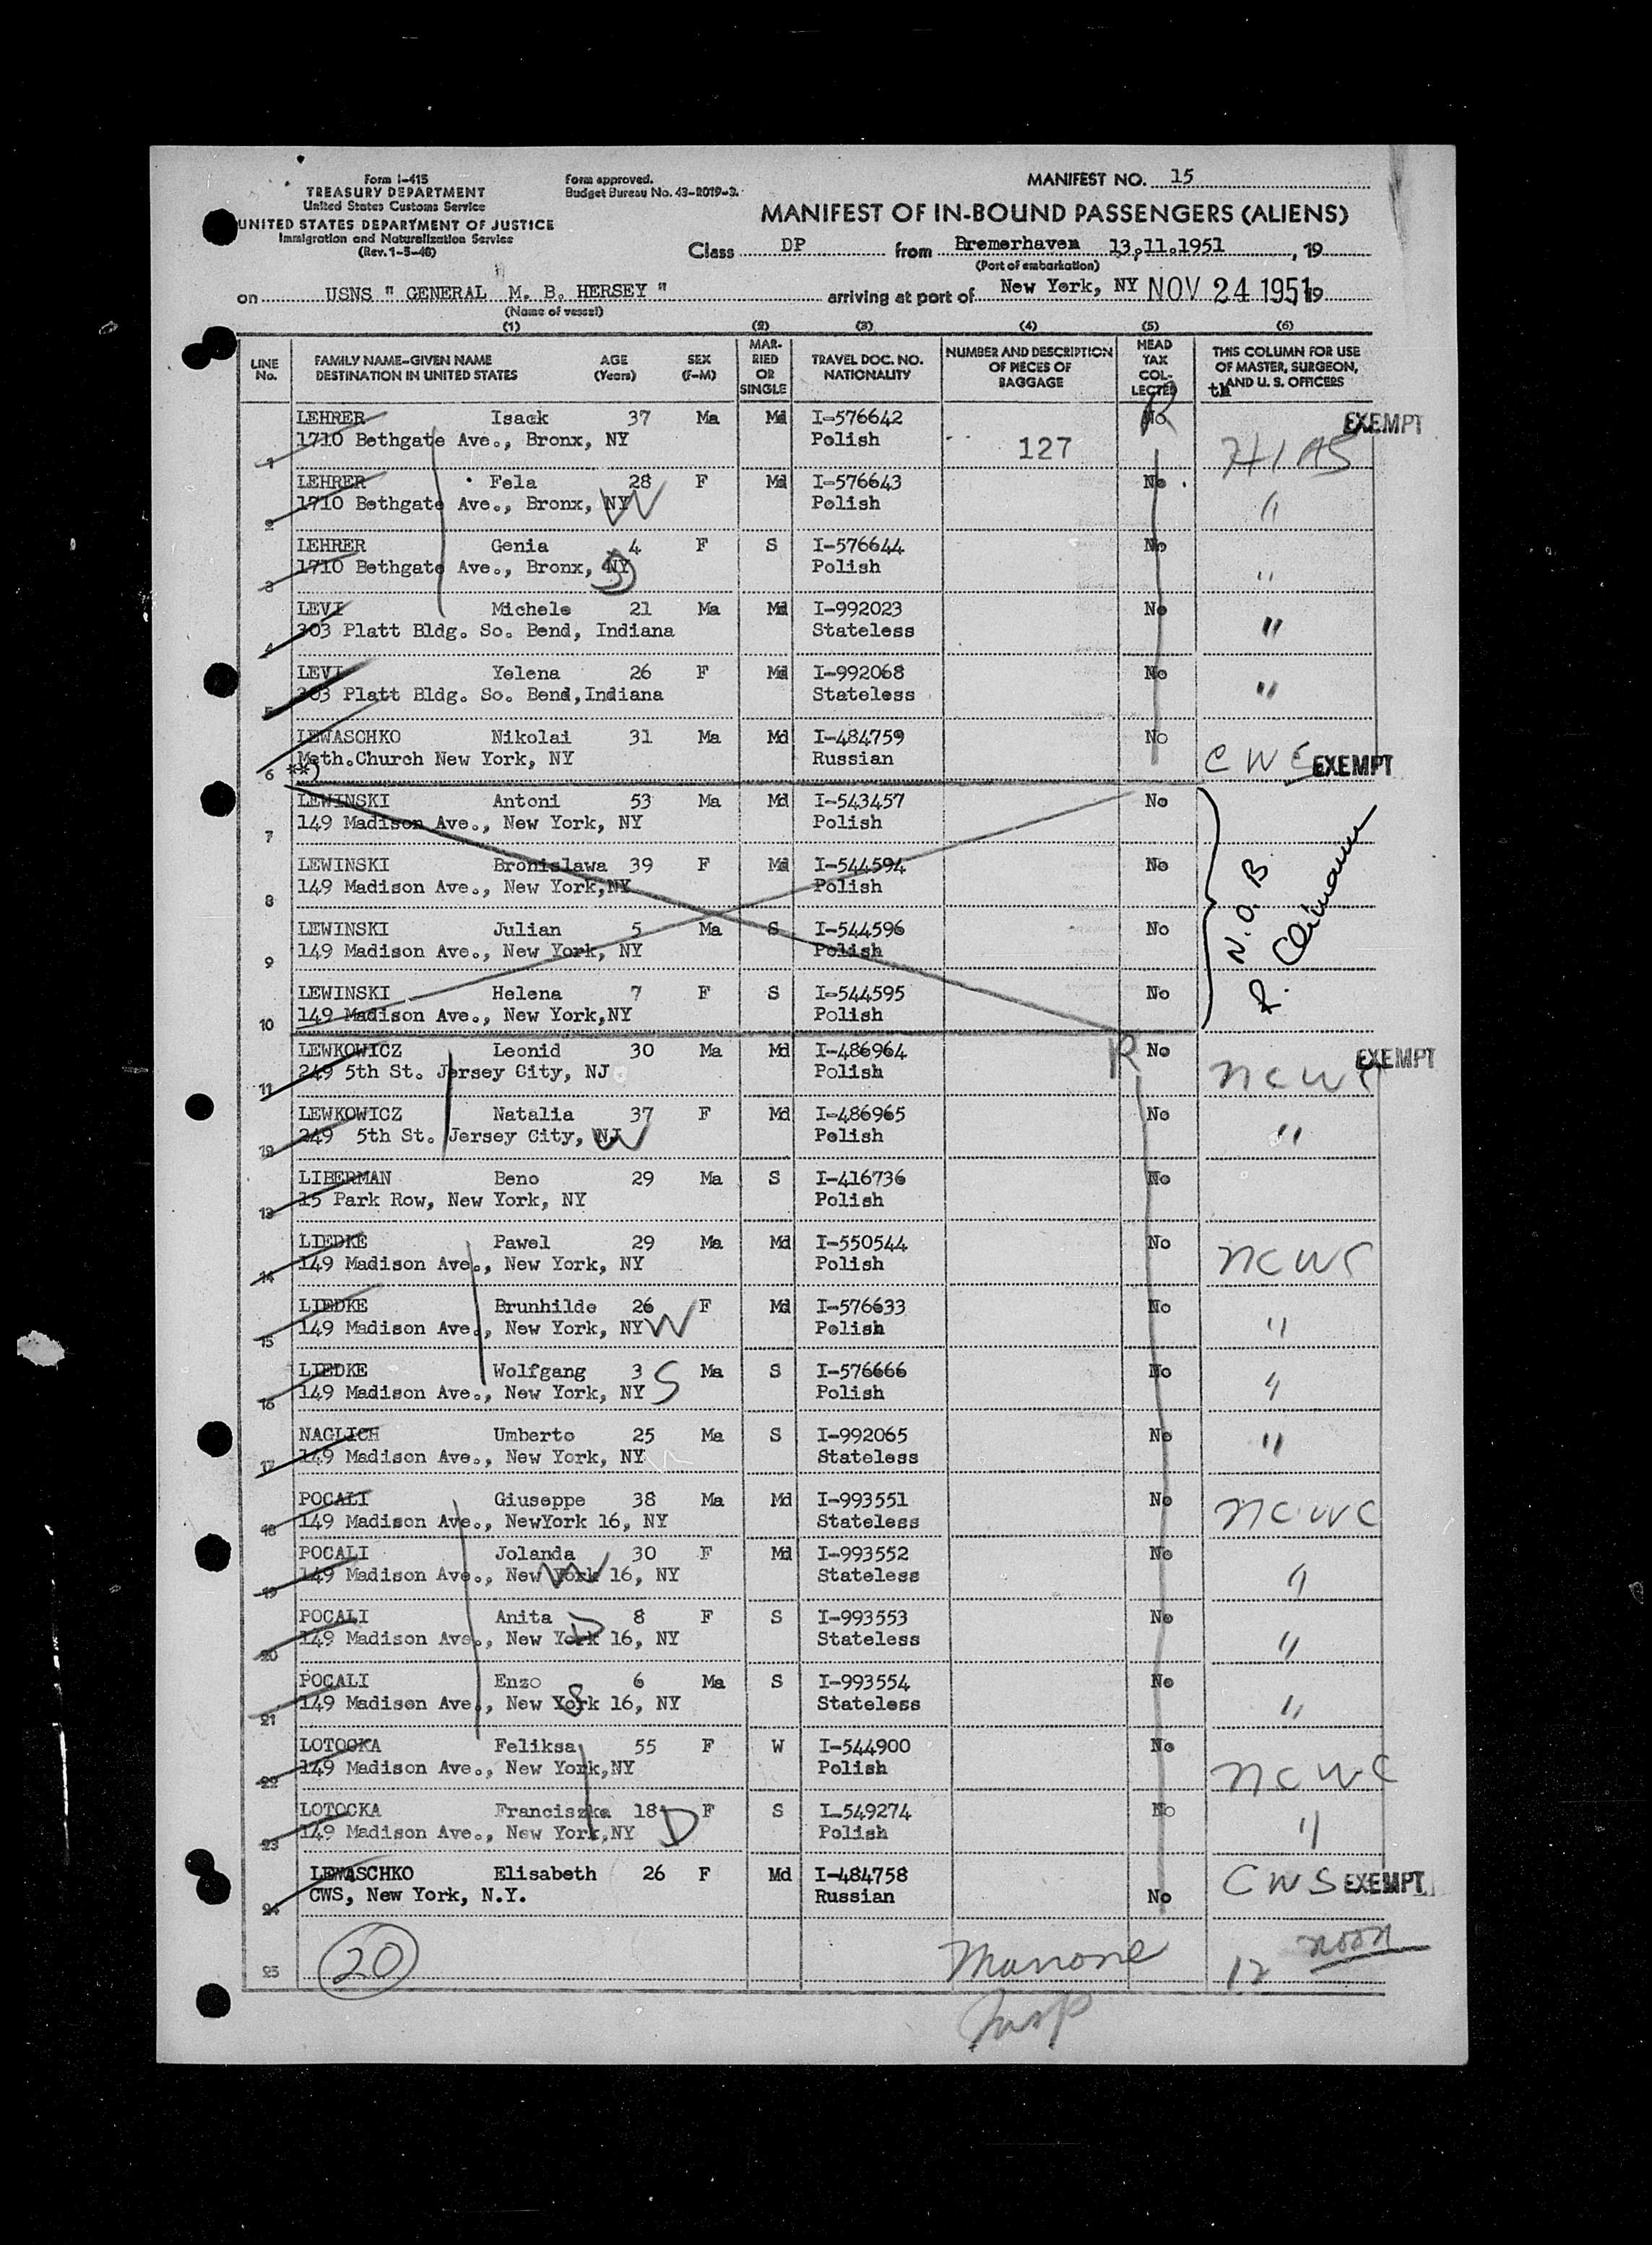 Form I-415
TREASURY DEPARTMENT
United States Customs Service
UNITED STATES DEPARTMENT OF JUSTICE
Immigration and Naturalization Service
(Rev. 1-5-48)
Form approved.
Budget Bureau No. 43-R019-3.
MANIFEST NO. 15
MANIFEST OF IN-BOUND PASSENGERS (ALIENS)
Class DP from Bremerhaven 13.11.1951, 19
(Port of embarkation)
on USNS " GENERAL M. B. HERSEY " arriving at port of New York, NY NOV 24 1951 19
(Name of vessel)
(1) (2) (3) (4) (5) (6)
LINE No. FAMILY NAME-GIVEN NAME DESTINATION IN UNITED STATES AGE (Years) SEX (F-M) MARRIED OR SINGLE TRAVEL DOC. NO. NATIONALITY NUMBER AND DESCRIPTION OF PIECES OF BAGGAGE HEAD TAX COLLECTED THIS COLUMN FOR USE OF MASTER, SURGEON, AND U. S. OFFICERS
LEHRER Isack 37 Ma Md I-576642 No EXEMPT
1 1710 Bethgate Ave., Bronx, NY Polish 127 HIAS
LEHRER Fela 28 F Md I-576643 No
2 1710 Bethgate Ave., Bronx, NY W Polish "
LEHRER Genia 4 F S I-576644 No
3 1710 Bethgate Ave., Bronx, NY D Polish "
LEVI Michele 21 Ma Md I-992023 No
4 303 Platt Bldg. So. Bend, Indiana Stateless "
LEVI Yelena 26 F Md I-992068 No
5 303 Platt Bldg. So. Bend,Indiana Stateless "
LEWASCHKO Nikolai 31 Ma Md I-484759 No
6 Meth.Church New York, NY Russian CWS EXEMPT
**)
LEWINSKI Antoni 53 Ma Md I-543457 No
7 149 Madison Ave., New York, NY Polish
LEWINSKI Bronislawa 39 F Md I-544594 No
8 149 Madison Ave., New York,NY Polish N.O.B.
LEWINSKI Julian 5 Ma S I-544596 No
9 149 Madison Ave., New York, NY Polish
LEWINSKI Helena 7 F S I-544595 No
10 149 Madison Ave., New York,NY Polish
LEWKOWICZ Leonid 30 Ma Md I-486964 R No EXEMPT
11 249 5th St. Jersey City, NJ Polish NCWC
LEWKOWICZ Natalia 37 F Md I-486965 No
12 249 5th St. Jersey City, NJ W Polish "
LIBERMAN Beno 29 Ma S I-416736 No
13 15 Park Row, New York, NY Polish
LIEDKE Pawel 29 Ma Md I-550544 No
14 149 Madison Ave., New York, NY Polish NCWC
LIEDKE Brunhilde 26 F Md I-576633 No
15 149 Madison Ave., New York, NY W Polish "
LIEDKE Wolfgang 3 Ma S I-576666 No
16 149 Madison Ave., New York, NY S Polish "
NAGLICH Umberto 25 Ma S I-992065 No
17 149 Madison Ave., New York, NY Stateless "
POCALI Giuseppe 38 Ma Md I-993551 No
18 149 Madison Ave., NewYork 16, NY Stateless NCWC
POCALI Jolanda 30 F Md I-993552 No
19 149 Madison Ave., New York 16, NY W Stateless "
POCALI Anita 8 F S I-993553 No
20 149 Madison Ave., New York 16, NY D Stateless "
POCALI Enzo 6 Ma S I-993554 No
21 149 Madison Ave., New York 16, NY S Stateless "
LOTOCKA Feliksa 55 F W I-544900 No
22 149 Madison Ave., New York,NY Polish NCWC
LOTOCKA Franciszka 18 F S I-549274 No
23 149 Madison Ave., New York,NY D Polish "
LEWASCHKO Elisabeth 26 F Md I-484758 CWS EXEMPT
24 CWS, New York, N.Y. Russian No
25 20 Manone 12 noon
Insp